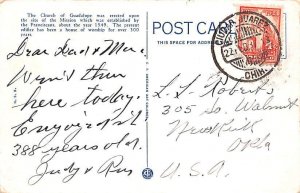 The Church of Guadalupe was erected upon
the site of the Mission which was established by the
Franciscans, about the year 1549. The present
edifice has been a house of worship for over 300
years.
Dear Dad & Mom
Went thru
here today.
Enjoyed it
388 years old.
Judy & Russ
POST CARD
THIS SPACE FOR ADDRESS
CIUDAD JUAREZ
CHIH
L. L. Roberts
305 So. Walnut
Newkirk
Okla
U.S.A.